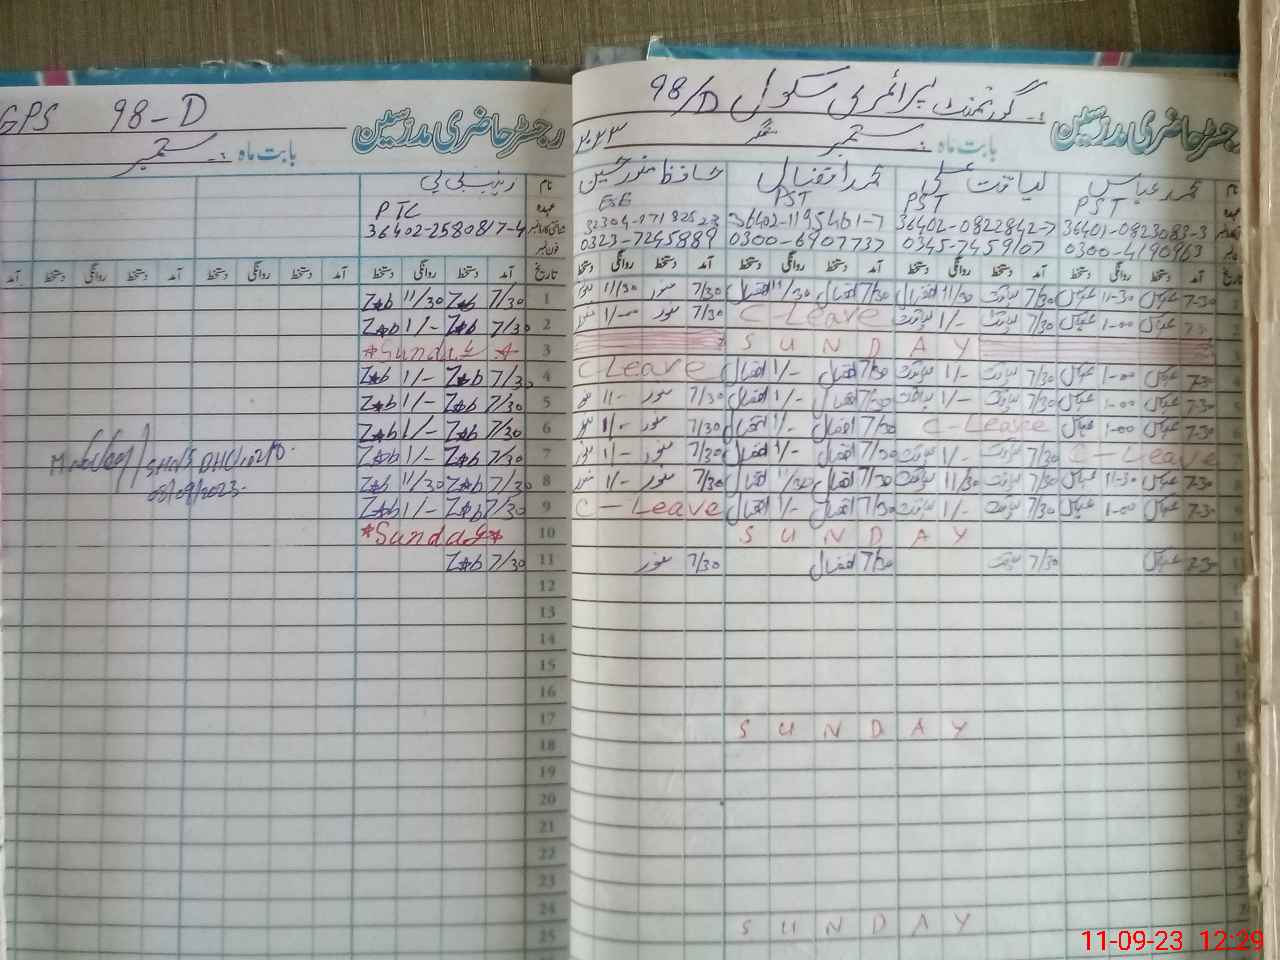 GPS 98-D
رجسٹر حاضری مدرسین
بابت ماہ ستمبر
نام
عہدہ PTC
36402-2580817-4
تاریخ آمد دستخط روانگی دستخط آمد دستخط روانگی دستخط آمد دستخط روانگی دستخط آمد
1 7/30 Zab 11/30 Zab
2 7/30 Zab 1/- Zab
3 *Sunday*
4 7/30 Zab 1/- Zab
5 7/30 Zab 1/- Zab
6 7/30 Zab 1/- Zab
7 7/30 Zab 1/- Zab
8 7/30 Zab 11/30 Zab
9 7/30 Zab 1/- Zab
10 *Sunday*
11 7/30 Zab
12
13
14
15
16
17
18
19
20
21
22
23
24
25
08/09/2023
گورنمنٹ پرائمری سکول 98/D
رجسٹر حاضری مدرسین
بابت ماہ ستمبر ۲۰۲۳
نام محمد عباس لیاقت علی محمد افضال حافظ منور حسین
PST PST PST ESE
36401-0923083-3 36402-0822842-7 36402-1195461-7
0300-4190963 0345-7459107 0300-6907737 0323-7245889
آمد دستخط روانگی دستخط آمد دستخط روانگی دستخط آمد دستخط روانگی دستخط آمد دستخط روانگی دستخط
7-30 عباس 11-30 عباس 7/30 لیاقت 11/30 افضال 7/30 افضال 11/30 افضال 7/30 منور 11/30 منور
عباس 1-00 عباس 7/30 لیاقت 1/- لیاقت C-Leave 7/30 منور 1/-00 منور
SUNDAY
7-30 عباس 1-00 عباس 7/30 لیاقت 1/- لیاقت 7/30 افضال 1/- افضال C-Leave
7-30 عباس 1-00 عباس 7/30 لیاقت 1/- لیاقت 7/30 افضال 1/- افضال 7/30 منور 1/- منور
7-30 عباس 1-00 عباس C-Leave 7/30 افضال 1/- افضال 7/30 منور 1/- منور
C-Leave 7/30 لیاقت 1/- لیاقت 7/30 افضال 1/- افضال 7/30 منور 1/- منور
7-30 عباس 11-30 عباس 7/30 لیاقت 11/30 لیاقت 7/30 افضال 11/30 افضال 7/30 منور 1/- منور
7-30 عباس 1-00 عباس 7/30 لیاقت 1/- لیاقت 7/30 افضال 1/- افضال C-Leave
SUNDAY
7-30 عباس 7/30 لیاقت 7/30 افضال 7/30 منور
SUNDAY
SUNDAY
11-09-23 12:29